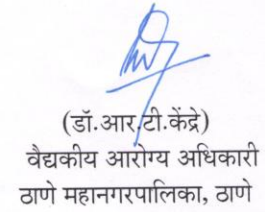 (डॉ.आर.टी.केंद्रे)
वैद्यकीय आरोग्य अधिकारी
ठाणे महानगरपालिका, ठाणे